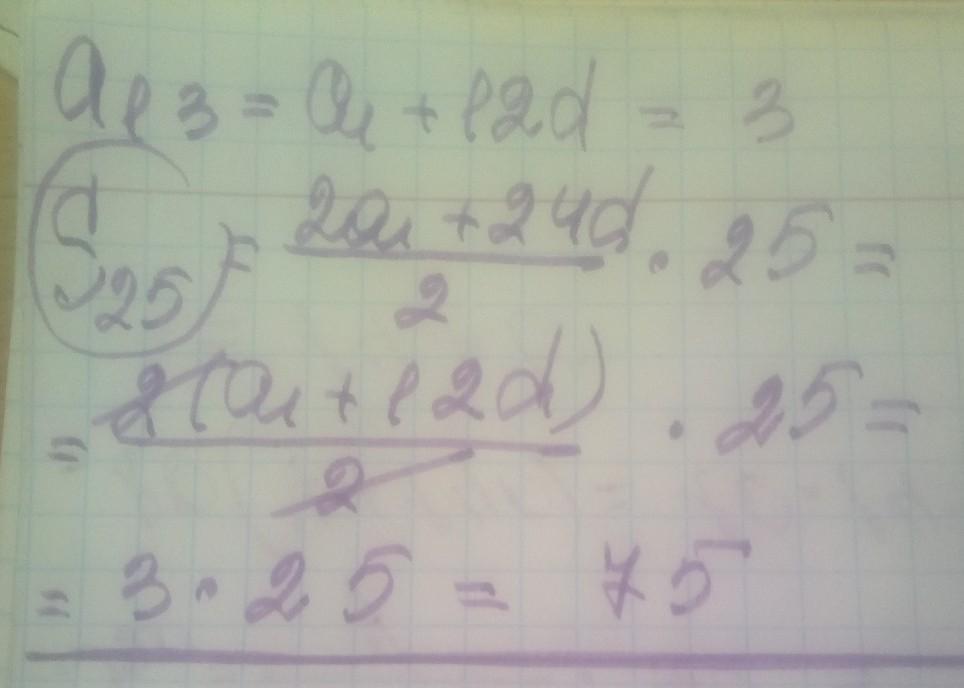 a₁₃ = a₁ + 12d = 3
S₂₅ = (2a₁ + 24d)/2 · 25 =
= 2(a₁ + 12d)/2 · 25 =
= 3 · 25 = 75